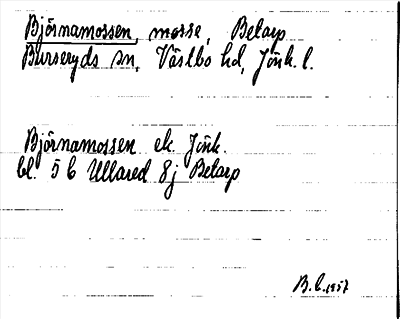 Björnamossen, mosse, Betarp
Burseryds sn, Västbo hd, Jönk. l.
Björnamossen ek. Jönk.
bl. 5 b Ullared 8j Betarp
B.L. 1957